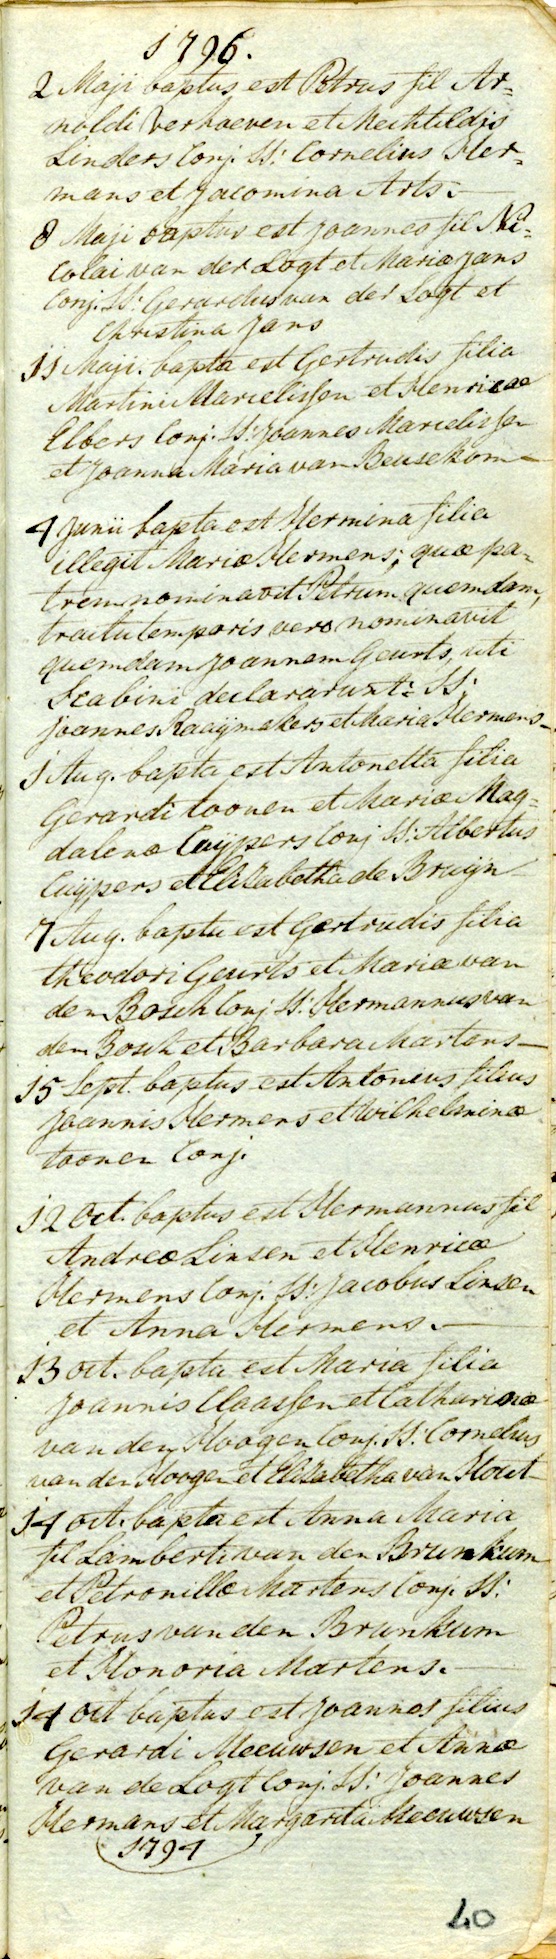 1796.
2 Maji baptus est Petrus fil Ar=
noldi Verhoeven et Mechtildis
Linders Conj. SS: Cornelius Her=
mans et Jacomina Arts:-
8 Maji baptus est Joannes fil Ni=
colai van der Logt et Mariæ Jans
Conj. SS: Gerardus van der Logt et
Christina Jans
11 Maji. bapta est Gertrudis filia
Martini Marcelissen et Henricæ
Elbers Conj. SS: Joannes Marcelissen
et Joanna Maria van Beusekom-
4 Junii bapta est Hermina filia
illegit Mariæ Hermens; quæ pa=
trem nominavit Petrum quemdam,
tractu temporis vero nominavit
quemdam Joannem Geurts, uti
Scabini declararunt: SS:
Joannes Raaijmakers et Maria Hermens-
1 Aug. bapta est Antonetta filia
Gerardi toonen et Mariæ Mag=
dalenæ Cuijpers Conj SS: Albertus
Cuijpers et Elizabetha de Bruijn
7 Aug. bapta est Gertrudis filia
theodori Geurts et Mariæ van
den Bosch Conj SS: Hermannus van
den Bosch et Barbara Martens-
15 Sept. baptus est Antonius filius
Joannis Hermens et Wilhelminæ
toonen Conj.
12 Oct. baptus est Hermannus fil
Andreæ Linsen et Henricæ
Hermens Conj. SS: Jacobus Linsen
et Anna Hermens.-
13 oct. bapta est Maria filia
Joannis Claassen et Catharinæ
van den Hoogen Conj. SS: Cornelius
van den Hoogen et Elizabetha van Hout-
14 oct. bapta est Anna Maria
fil Lamberti van den Brunkum
et Petronillæ Martens Conj. SS:
Petrus van den Brunkum
et Honoria Martens.-
14 oct baptus est Joannes filius
Gerardi Meeuwsen et Annæ
van de Logt Conj. SS: Joannes
Hermans et Margarita Meeuwsen
1794
40